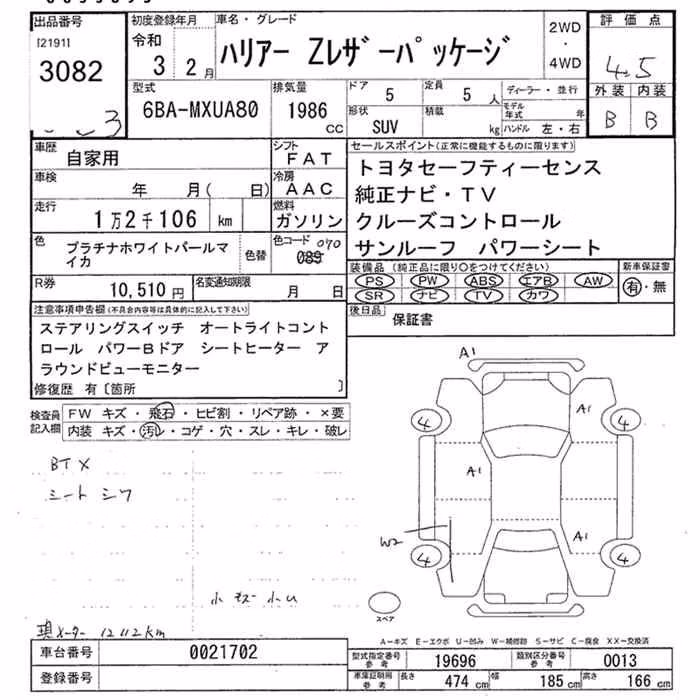 出品番号
[2191]
3082
3
初度登録年月
令和
3 2月
車名・グレード
ハリアー Zレザーパッケージ
2WD
・
4WD
評価点
4.5
外装 内装
B B
型式
6BA-MXUA80
排気量
1986
CC
ドア
5
定員
5 人
形状
SUV
積載
kg
ディーラー・並行
モデル
年式 年
ハンドル 左・右
車歴
自家用
シフト
FAT
車検
年 月( 日)
冷房
AAC
走行
1万2千106 km
燃料
ガソリン
色
プラチナホワイトパールマ
イカ
色替
色コード 070
089
R券
10,510円
名変通知期限
月 日
セールスポイント(正常に機能するものに限ります)
トヨタセーフティーセンス
純正ナビ・TV
クルーズコントロール
サンルーフ パワーシート
装備品 (純正品に限り○をつけてください)
PS PW ABS エアB AW
SR ナビ TV カワ
新車保証書
有・無
後日品
保証書
注意事項申告欄(不具合内容等は具体的に記入して下さい)
ステアリングスイッチ オートライトコント
ロール パワーBドア シートヒーター ア
ラウンドビューモニター
修復歴 有〔箇所 〕
検査員
記入欄
FW キズ・飛石・ヒビ割・リペア跡・×要
内装 キズ・汚レ・コゲ・穴・スレ・キレ・破レ
BT X
シート シワ
小キズ 小U
現メーター 12112km
A1
A1
A1
A1
W2
4
4
4
4
スペア
A-キズ E-エクボ U-凹み W-補修跡 S-サビ C-腐食 XX-交換済
車台番号
0021702
登録番号
型式指定番号
参考
19696
類別区分番号
参考
0013
車庫証明用
参考
長さ
474 cm
幅
185 cm
高さ
166 cm